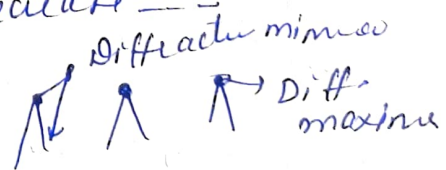 Diffraction minima
Diff.
maxima